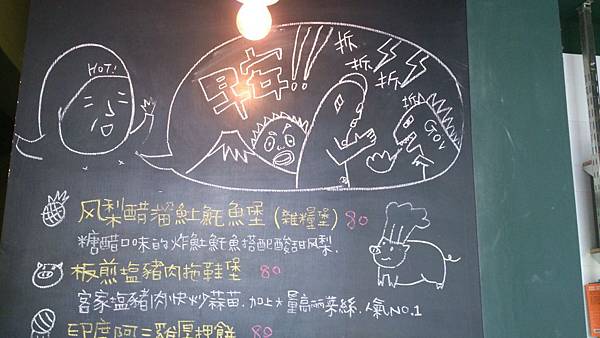 HOT!
早安!!!
拆
拆
拆
拆
Gov
风梨醋溜魠魠魚堡(雜糧堡) 80
糖醋口味的炸魠魠魚搭配酸甜风梨.
板煎塩豬肉拖鞋堡 80
客家塩豬肉快炒蒜苗.加上大量高麗菜絲.人氣NO.1
印度阿三雞厚押餅 80